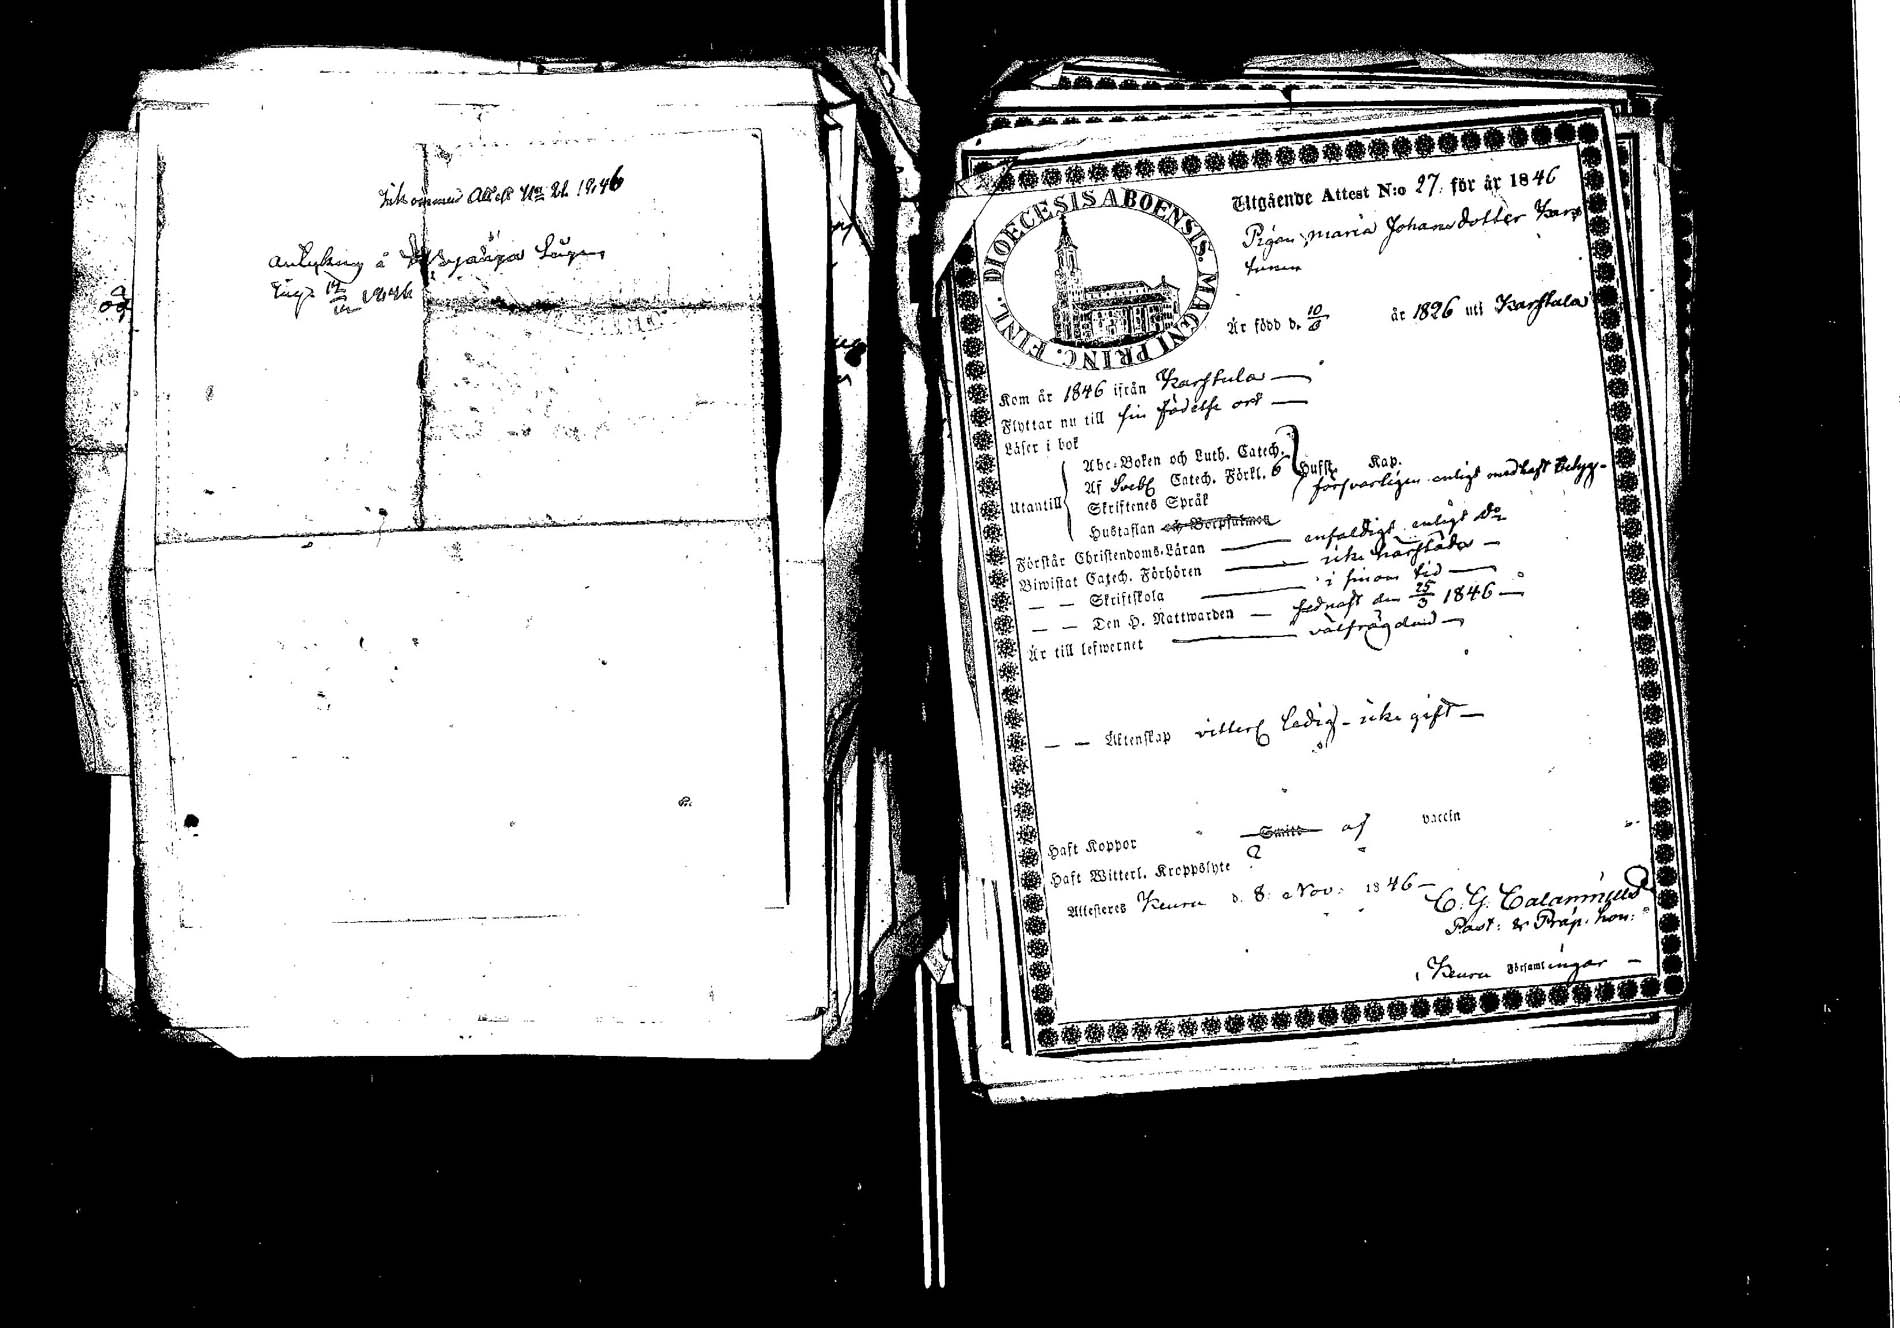 Inkommen Attest N:o 21. 1846
å
Ing.
DIOECESIS ABOENSIS. MAGNI PRINC. FINL.
Utgående Attest N:o 27. för år 1846
Pigan Maria Johansdotter
Är född d. 10/6 år 1826 uti Karstula
Kom år 1846 ifrån Karstula —
Flyttar nu till sin födelse ort —
Läser i bok
Utantill
Abc-Boken och Luth. Catech.
Af Sveb. Catech. Förkl. 6 Hufst. Kap.
Skriftenes Språk försvarligen enligt medhaft betyg-
Hustaflan och Botpsalmen
Förstår Christendoms-Läran — enfaldigt enligt do
Biwistat Catech. Förhören — icke härstädes —
— — Skriftskola — i sinom tid —
— — Den H. Nattwarden — sednast den 25/3 1846 —
Är till lefwernet — välfrägdad —
— — Äktenskap vitterl. ledig - icke gift —
Haft Koppor Smitt af vaccin
Haft Witterl. Kroppslyte ?
Attesteres Keuru d. 8. Nov. 1846 —
C. G. Calamnius
Past: & Präp. hon:
i Keuru Församlingar —